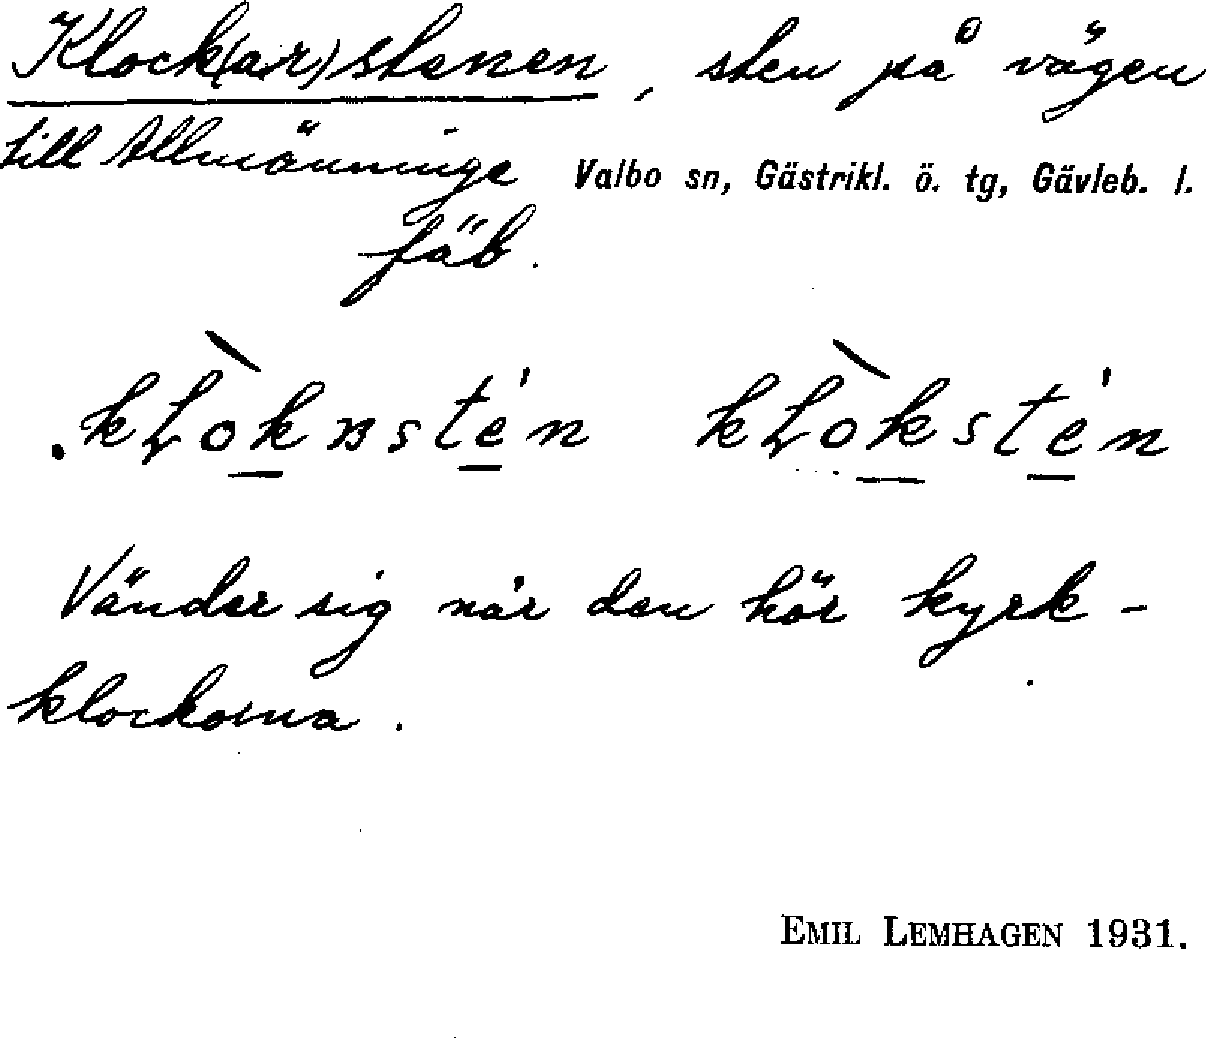 Klock(ar)stenen, sten på vägen
till Allmänninge
Valbo sn, Gästrikl. ö. tg, Gävleb. l.
fäb.
Vänder sig når den hör kyrk-
klockorna.
EMIL LEMHAGEN 1931.